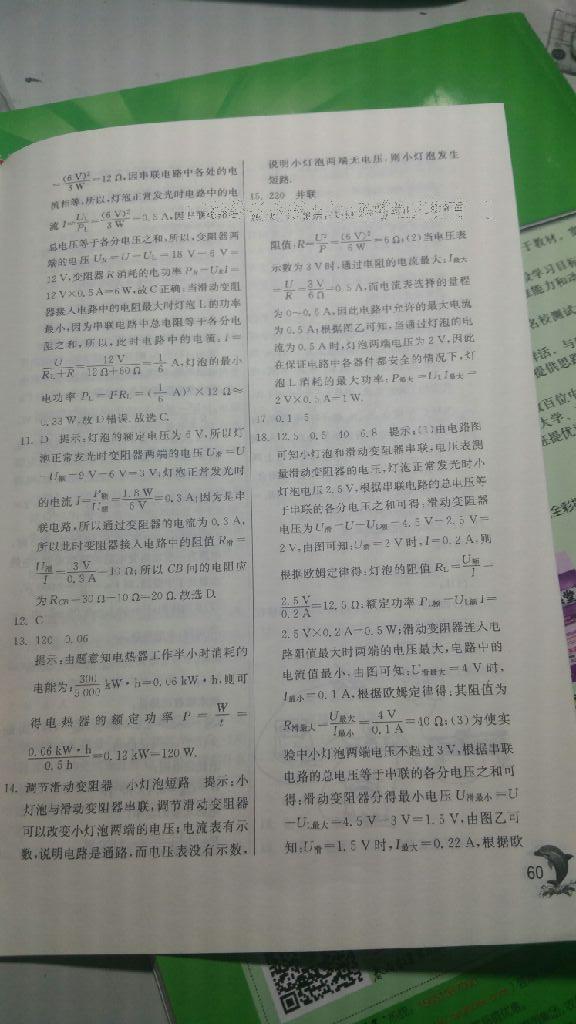 =(6 V)²/3 W=12 Ω,因串联电路中各处的电
流相等,所以,灯泡正常发光时电路中的电
总电压等于各分电压之和,所以,变阻器两
端的电压 U_R=U-U_L=18 V-6 V=
12 V,变阻器 R 消耗的电功率 P_R=U_RI=
12 V×0.5 A=6 W,故 C 正确;当滑动变阻
器接入电路中的电阻最大时灯泡 L 的功率
最小,因为串联电路中总电阻等于各分电
阻之和,所以,此时电路中的电流,I=
A,灯泡的最小
0.33 W,故 D 错误.故选 C.
11. D 提示:灯泡的额定电压为 6 V,所以灯
泡正常发光时变阻器两端的电压 U滑=U
-U额=9 V-6 V=3 V;灯泡正常发光时
的电流 I=P额/U额=1.8 W/6 V=0.3 A;因为是串
联电路,所以通过变阻器的电流为 0.3 A,
所以此时变阻器接入电路中的阻值 R滑=
U滑/I=3 V/0.3 A=10 Ω;所以 CB 间的电阻应
为 R_CB=30 Ω-10 Ω=20 Ω.故选 D.
12. C
13. 120 0.06
提示:由题意知电热器工作半小时消耗的
电能为:300/5 000 kW·h=0.06 kW·h,则可
得电热器的额定功率 P=W/t=
0.06 kW·h/0.5 h=0.12 kW=120 W.
14. 调节滑动变阻器 小灯泡短路 提示:小
灯泡与滑动变阻器串联,调节滑动变阻器
可以改变小灯泡两端的电压;电流表有示
数,说明电路是通路,而电压表没有示数,
说明小灯泡两端无电压,则小灯泡发生
短路.
15. 220 并联
阻值:R=U²/P=(6 V)²/6 W=6 Ω;(2)当电压表
示数为 3 V 时,通过电阻的电流最大:I最大=
U/R=3 V/6 Ω=0.5 A,而电流表选择的量程
为 0~0.6 A,因此电路中允许的最大电流
为 0.5 A;根据图乙可知,当通过灯泡的电
流为 0.5 A 时,灯泡两端电压为 2 V,因此
在保证电路中各器件都安全的情况下,灯
泡 L 消耗的最大功率:P最大=U_L I最大=
2 V×0.5 A=1 W.
17. 0.1 5
18. 12.5 0.5 40 6.8 提示:(1)由电路图
可知小灯泡和滑动变阻器串联,电压表测
量滑动变阻器的电压,灯泡正常发光时小
灯泡电压 2.5 V,根据串联电路的总电压等
于串联的各分电压之和可得:滑动变阻器
电压为 U滑=U-U_L额=4.5 V-2.5 V=
2 V,由图可知:U滑=2 V 时,I=0.2 A,则
根据欧姆定律得:灯泡的阻值 R_L=U额/I=
2.5 V/0.2 A=12.5 Ω;额定功率 P_L额=U_L额I=
2.5 V×0.2 A=0.5 W;滑动变阻器连入电
路阻值最大时两端的电压最大,电路中的
电流值最小,由图可知:U滑最大=4 V 时,
I最小=0.1 A,根据欧姆定律得:其阻值为
R滑最大=U最大/I最小=4 V/0.1 A=40 Ω;(3)为使实
验中小灯泡两端电压不超过 3 V,根据串联
电路的总电压等于串联的各分电压之和可
得:滑动变阻器分得最小电压 U滑最小=U
-U_L最大=4.5 V-3 V=1.5 V,由图乙可
知:U滑=1.5 V 时,I最大=0.22 A,根据欧
60